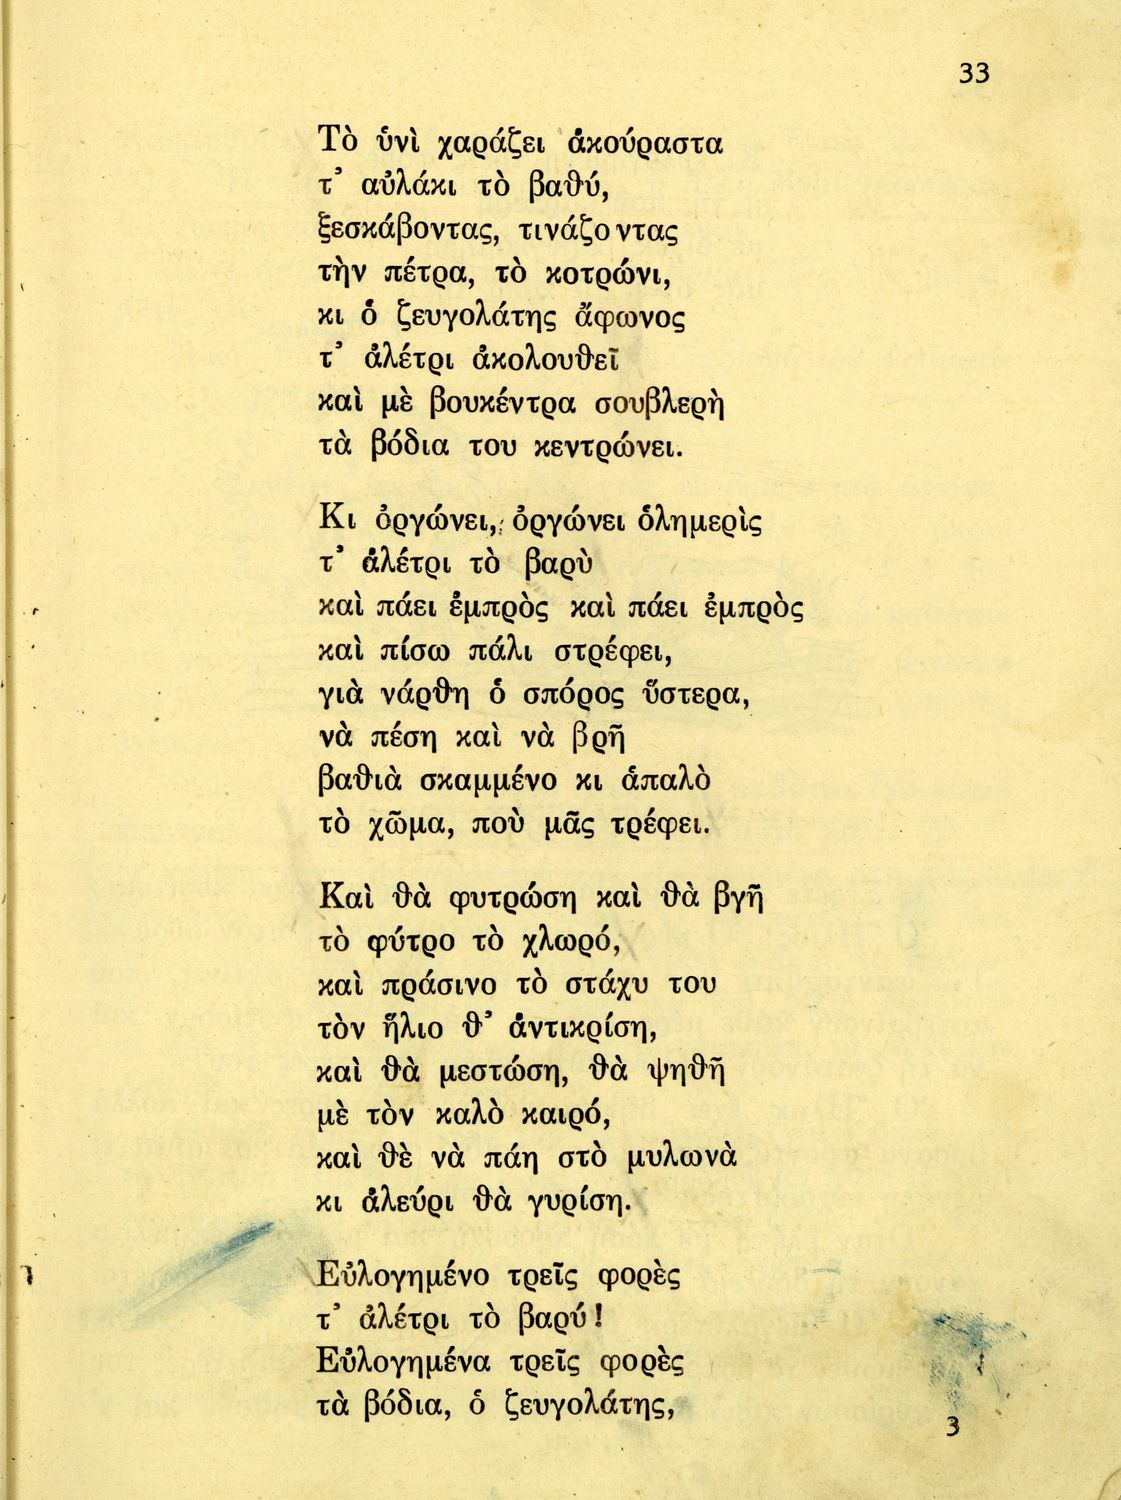 33
Τὸ ὑνὶ χαράζει ἀκούραστα
τ' αὐλάκι τὸ βαθύ,
ξεσκάβοντας, τινάζοντας
τὴν πέτρα, τὸ κοτρώνι,
κι ὁ ζευγολάτης ἄφωνος
τ' ἀλέτρι ἀκολουθεῖ
καὶ μὲ βουκέντρα σουβλερὴ
τὰ βόδια του κεντρώνει.
Κι ὀργώνει, ὀργώνει ὁλημερὶς
τ' ἀλέτρι τὸ βαρὺ
καὶ πάει ἐμπρὸς καὶ πάει ἐμπρὸς
καὶ πίσω πάλι στρέφει,
γιὰ νάρθη ὁ σπόρος ὕστερα,
νὰ πέση καὶ νὰ βρῆ
βαθιὰ σκαμμένο κι ἁπαλὸ
τὸ χῶμα, ποὺ μᾶς τρέφει.
Καὶ θὰ φυτρώση καὶ θὰ βγῆ
τὸ φύτρο τὸ χλωρό,
καὶ πράσινο τὸ στάχυ του
τὸν ἥλιο θ' ἀντικρίση,
καὶ θὰ μεστώση, θὰ ψηθῆ
μὲ τὸν καλὸ καιρό,
καὶ θὲ νὰ πάη στὸ μυλωνὰ
κι ἀλεύρι θὰ γυρίση.
Εὐλογημένο τρεῖς φορὲς
τ' ἀλέτρι τὸ βαρύ!
Εὐλογημένα τρεῖς φορὲς
τὰ βόδια, ὁ ζευγολάτης,
3